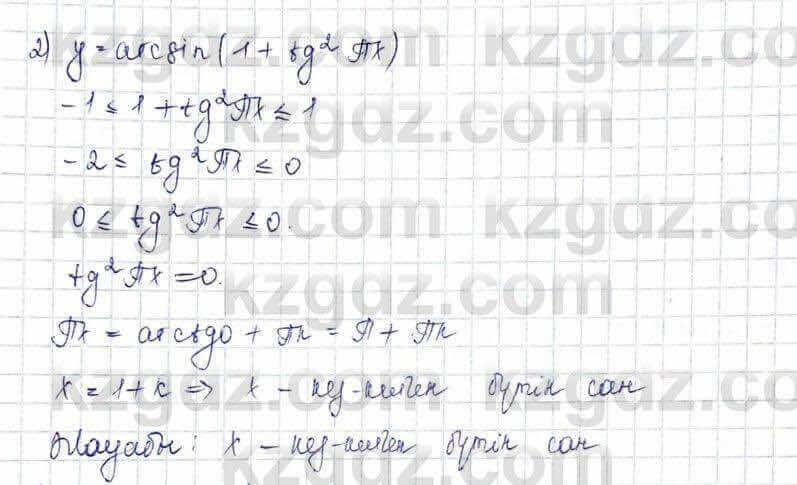 2) y = arcsin(1 + tg² πx)
-1 ≤ 1 + tg² πx ≤ 1
-2 ≤ tg² πx ≤ 0
0 ≤ tg² πx ≤ 0.
tg² πx = 0.
πx = arctg0 + πk = π + πk
x = 1 + k => x - кез-келген бүтін сан
Жауабы: x - кез-келген бүтін сан
kzgdz.com kzgdz.com
kzgdz.com kzgdz.com
kzgdz.com kzgdz.com
kzgdz.com kzgdz.com
kzgdz.com kzgdz.com
kzgdz.com kzgdz.com